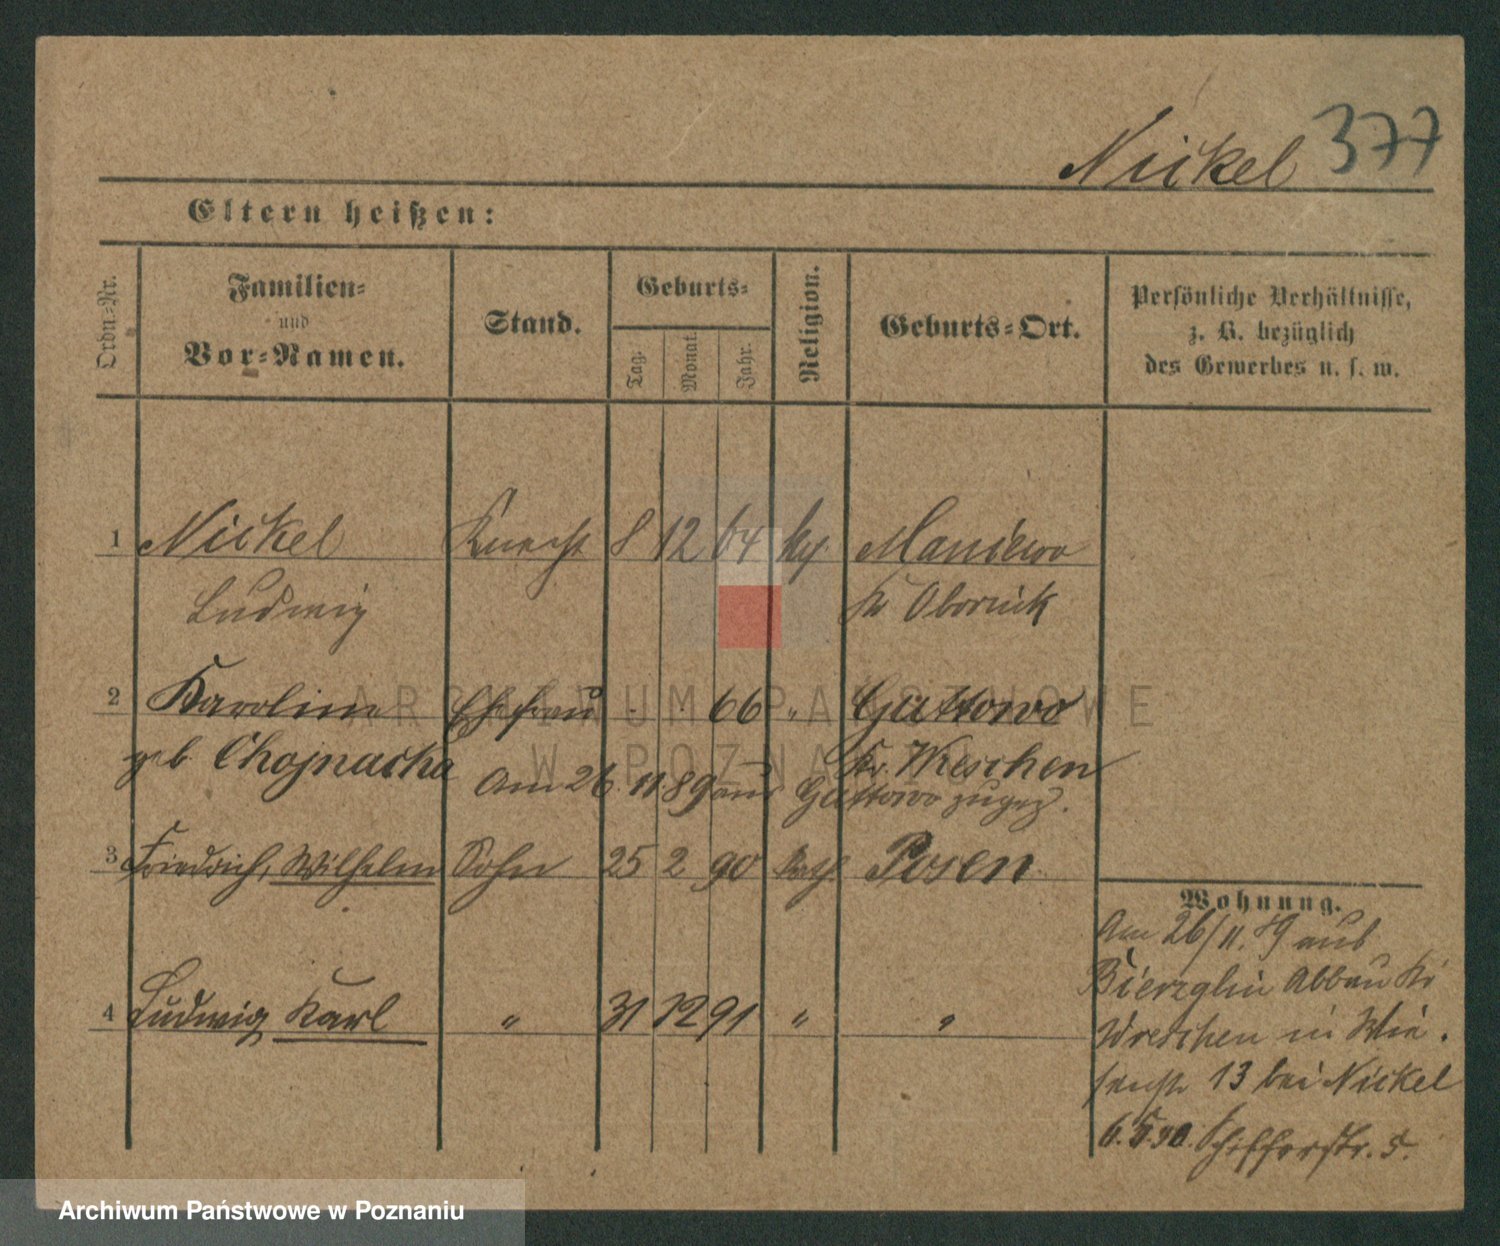 Nickel 377
Eltern heißen:
Ordn.-Nr.
Familien-
und
Vor-Namen.
Stand.
Geburts-
Tag.
Monat.
Jahr.
Religion.
Geburts-Ort.
Persönliche Verhältnisse,
z. B. bezüglich
des Gewerbes u. s. w.
1 Nickel Knecht 8 12 64 Maniewo
Ludwig Kr Obornik
2 Karoline Ehefrau - - 66 " Guttowo
geb Chojnacka Kr. Wreschen
Am 26. 11. 89 aus Guttowo zugez.
3 Friedrich, Wilhelm Sohn 25 2 90 Kath. Posen
4 Ludwig Karl " 31 12 91 " "
Wohnung.
Am 26/11. 89 aus
Bierzglin Abbau Kr
Wreschen in Wie-
senstr 13 bei Nickel
6. 5. 90. Schifferstr. 5.
ARCHIWUM PAŃSTWOWE
W POZNANIU
Archiwum Państwowe w Poznaniu